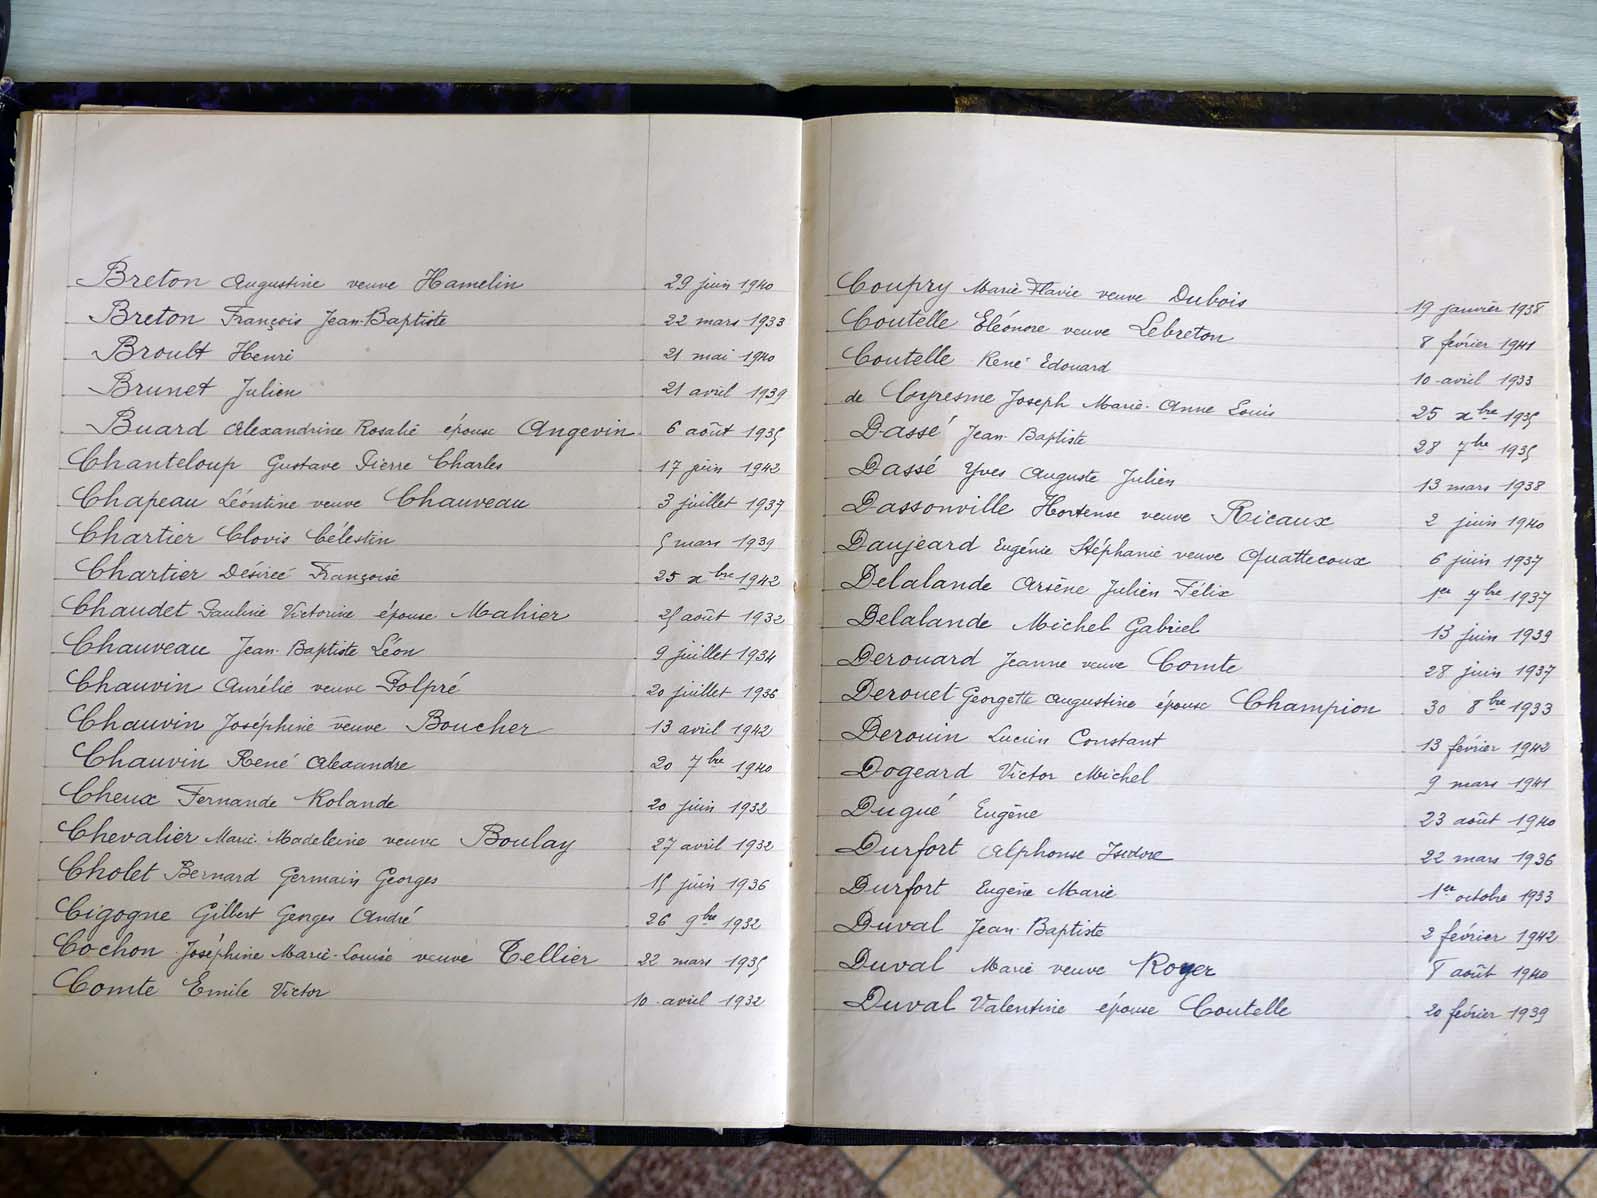 Breton Augustine veuve Hamelin 29 juin 1940
Breton François Jean-Baptiste 22 mars 1933
Broult Henri 21 mai 1940
Brunet Julien 21 avril 1939
Buard Alexandrine Rosalie épouse Angevin 6 août 1935
Chanteloup Gustave Pierre Charles 17 juin 1942
Chapeau Léontine veuve Chauveau 3 juillet 1937
Chartier Clovis Célestin 5 mars 1939
Chartier Désirée Françoise 25 xbre 1942
Chaudet Pauline Victorine épouse Mahier 25 août 1932
Chauveau Jean-Baptiste Léon 9 juillet 1934
Chauvin Aurélie veuve Folpré 20 juillet 1936
Chauvin Joséphine veuve Boucher 13 avril 1942
Chauvin René Alexandre 20 7bre 1940
Cheux Fernande Rolande 20 juin 1932
Chevalier Marie-Madeleine veuve Boulay 27 avril 1932
Cholet Bernard Germain Georges 15 juin 1936
Cigogne Gilbert Georges André 26 9bre 1932
Cochon Joséphine Marie-Louise veuve Tellier 22 mars 1935
Comte Emile Victor 10 avril 1932
Coupry Marie Flavie veuve Dubois 19 janvier 1938
Coutelle Eléonore veuve Lebreton 8 février 1941
Coutelle René Edouard 10 avril 1933
de Cyresme Joseph Marie-Anne Louis 25 xbre 1935
Dassé Jean-Baptiste 28 7bre 1935
Dassé Yves Auguste Julien 13 mars 1938
Dassonville Hortense veuve Ricaux 2 juin 1940
Daujeard Eugénie Stéphanie veuve Quattecoux 6 juin 1937
Delalande Arsène Julien Félix 1er 9bre 1937
Delalande Michel Gabriel 13 juin 1939
Derouard Jeanne veuve Comte 28 juin 1937
Derouet Georgette Augustine épouse Champion 30 8bre 1933
Derouin Lucien Constant 13 février 1942
Dogeard Victor Michel 9 mars 1941
Dugué Eugène 23 août 1940
Durfort Alphonse Isidore 22 mars 1936
Durfort Eugène Marie 1er octobre 1933
Duval Jean-Baptiste 2 février 1942
Duval Marie veuve Royer 8 août 1940
Duval Valentine épouse Coutelle 20 février 1939